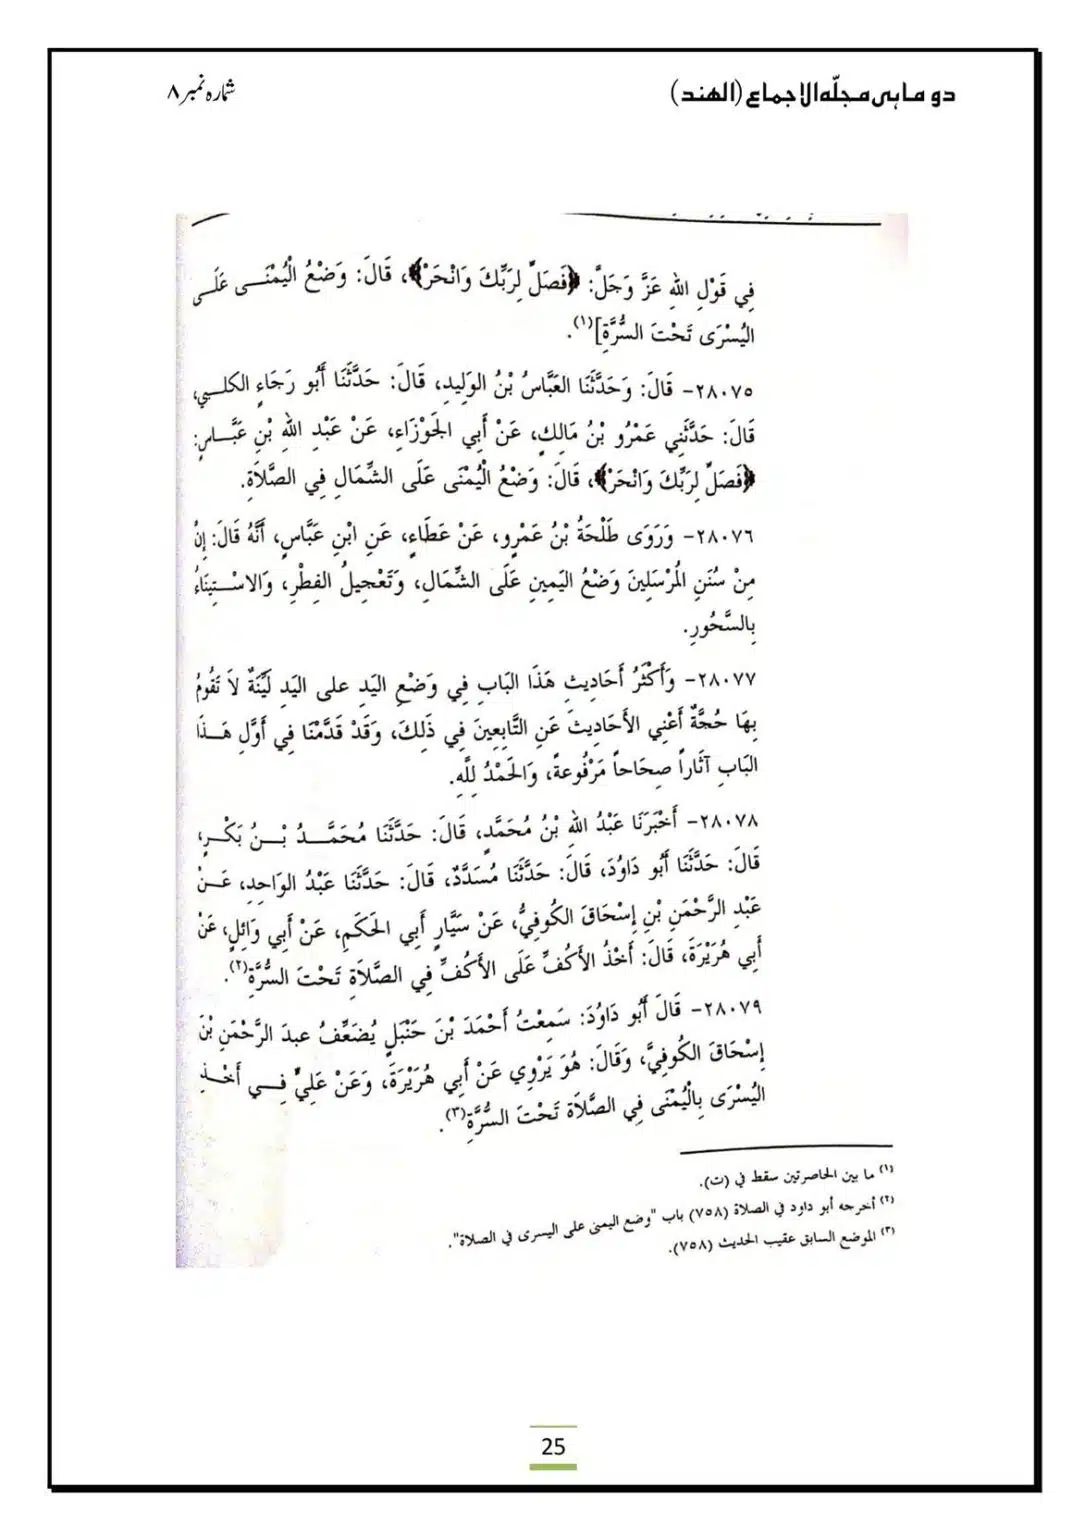 دو ماہی مجلّہ الاجماع (الھند)
شمارہ نمبر ۸
فِي قَوْلِ اللهِ عَزَّ وَجَلَّ: ﴿فَصَلِّ لِرَبِّكَ وَانْحَرْ﴾، قَالَ: وَضْعُ الْيُمْنَـــى عَلَـى
اليُسْرَى تَحْتَ السُّرَّةِ](١).
٢٨٠٧٥- قَالَ: وَحَدَّثَنَا العَبَّاسُ بْنُ الوَلِيدِ، قَالَ: حَدَّثَنَا أَبُو رَجَاءٍ الكلـــبي،
قَالَ: حَدَّثَنِي عَمْرُو بْنُ مَالِكٍ، عَنْ أَبِي الجَوْزَاءِ، عَنْ عَبْدِ اللهِ بْنِ عَبَّـــاسٍ:
﴿فَصَلِّ لِرَبِّكَ وَانْحَرْ﴾، قَالَ: وَضْعُ الْيُمْنَى عَلَى الشِّمَالِ فِي الصَّلَاةِ.
٢٨٠٧٦- وَرَوَى طَلْحَةُ بْنُ عَمْرٍو، عَنْ عَطَاءٍ، عَنِ ابْنِ عَبَّاسٍ، أَنَّهُ قَالَ: إِنَّ
مِنْ سُنَنِ الْمُرْسَلِينَ وَضْعُ اليَمِينِ عَلَى الشِّمَالِ، وَتَعْجِيلُ الفِطْرِ، وَالاسْـــتِينَاءُ
بِالسَّحُورِ.
٢٨٠٧٧- وَأَكْثَرُ أَحَادِيثِ هَذَا البَابِ فِي وَضْعِ اليَدِ على اليَدِ لَيِّنَةٌ لَا تَقُومُ
بِهَا حُجَّةٌ أَعْنِي الأَحَادِيثَ عَنِ التَّابِعِينَ فِي ذَلِكَ، وَقَدْ قَدَّمْنَا فِي أَوَّلِ هَـــذَا
البَابِ آثَاراً صِحَاحاً مَرْفُوعةً، وَالحَمْدُ لِلَّهِ.
٢٨٠٧٨- أَخْبَرَنَا عَبْدُ اللهِ بْنُ مُحَمَّدٍ، قَالَ: حَدَّثَنَا مُحَمَّـــدُ بْـــنُ بَكْـــرٍ،
قَالَ: حَدَّثَنَا أَبُو دَاوُدَ، قَالَ: حَدَّثَنَا مُسَدَّدٌ، قَالَ: حَدَّثَنَا عَبْدُ الوَاحِدِ، عَـــنْ
عَبْدِ الرَّحْمَنِ بْنِ إِسْحَاقَ الكُوفِيُّ، عَنْ سَيَّارٍ أَبِي الحَكَمِ، عَنْ أَبِي وَائِلٍ، عَنْ
أَبِي هُرَيْرَةَ، قَالَ: أَخْذُ الأَكُفِّ عَلَى الأَكُفِّ فِي الصَّلَاةِ تَحْتَ السُّرَّةِ(٢).
٢٨٠٧٩- قَالَ أَبُو دَاوُدَ: سَمِعْتُ أَحْمَدَ بْنَ حَنْبَلٍ يُضَعِّفُ عبدَ الرَّحْمَنِ بْنَ
إِسْحَاقَ الكُوفِيَّ، وَقَالَ: هُوَ يَرْوِي عَنْ أَبِي هُرَيْرَةَ، وَعَنْ عَلِيٍّ فِـــي أَخْـــذِ
اليُسْرَى بِالْيُمْنَى فِي الصَّلَاةِ تَحْتَ السُّرَّةِ(٣).
(١) ما بين الحاصرتين سقط في (ت).
(٢) أخرجه أبو داود في الصلاة (٧٥٨) باب "وضع اليمنى على اليسرى في الصلاة".
(٣) الموضع السابق عقيب الحديث (٧٥٨).
25